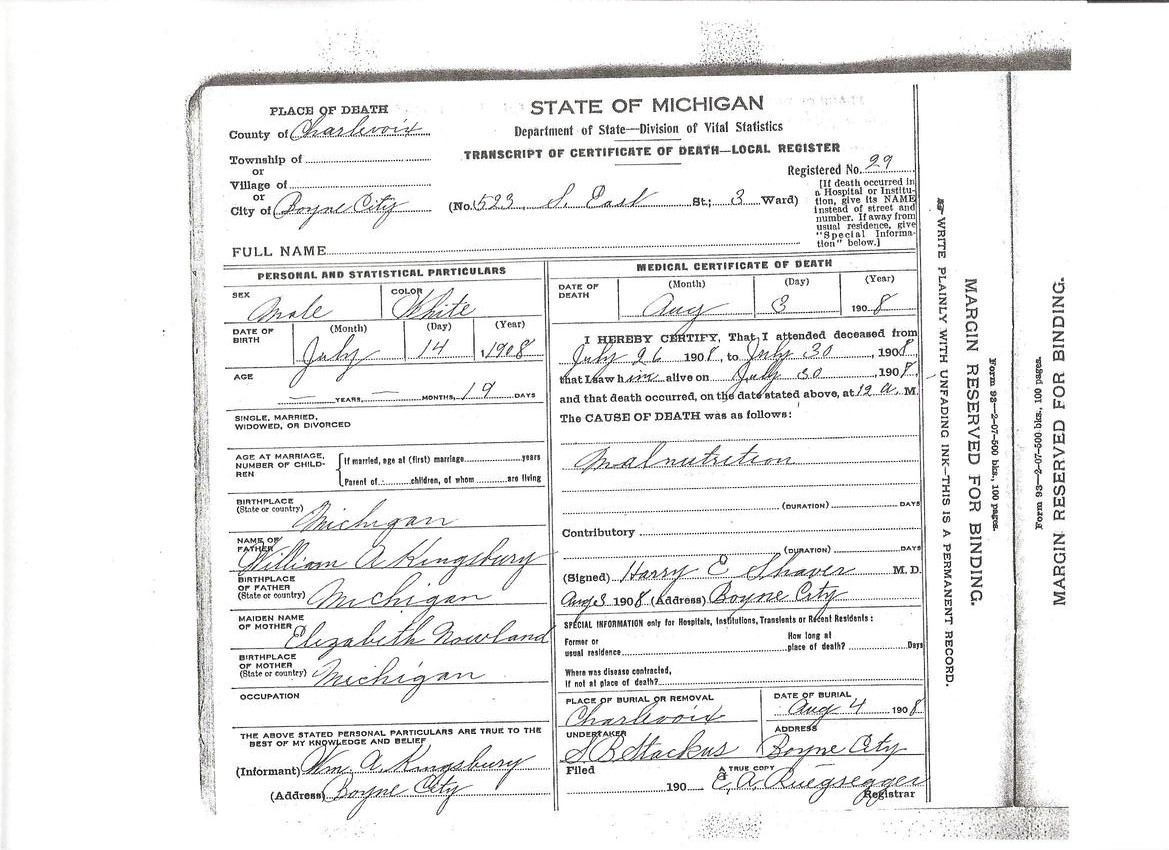 PLACE OF DEATH
County of Charlevoix
Township of
or
Village of
or
City of Boyne City
STATE OF MICHIGAN
Department of State—Division of Vital Statistics
TRANSCRIPT OF CERTIFICATE OF DEATH—LOCAL REGISTER
Registered No. 29
(No. 523 S. East St.; 3 Ward)
[If death occurred in
a Hospital or Institu-
tion, give its NAME
instead of street and
number. If away from
usual residence, give
"Special Informa-
tion" below.]
FULL NAME
PERSONAL AND STATISTICAL PARTICULARS
SEX
Male
COLOR
White
DATE OF
BIRTH
(Month) (Day) (Year)
July 14, 1908
AGE
— YEARS, — MONTHS, 19 DAYS
SINGLE, MARRIED,
WIDOWED, OR DIVORCED
AGE AT MARRIAGE,
NUMBER OF CHILD-
REN
If married, age at (first) marriage years
Parent of children, of whom are living
BIRTHPLACE
(State or country)
Michigan
NAME OF
FATHER
William A Kingsbury
BIRTHPLACE
OF FATHER
(State or country)
Michigan
MAIDEN NAME
OF MOTHER
Elizabeth Nowland
BIRTHPLACE
OF MOTHER
(State or country)
Michigan
OCCUPATION
THE ABOVE STATED PERSONAL PARTICULARS ARE TRUE TO THE
BEST OF MY KNOWLEDGE AND BELIEF
(Informant) Wm. A. Kingsbury
(Address) Boyne City
MEDICAL CERTIFICATE OF DEATH
DATE OF
DEATH
(Month) (Day) (Year)
Aug 3 1908
I HEREBY CERTIFY, That I attended deceased from
July 26 1908, to July 30, 1908,
that I saw him alive on July 30, 1908,
and that death occurred, on the date stated above, at 12 a. M.
The CAUSE OF DEATH was as follows:
Malnutrition
(DURATION) DAYS
Contributory
(DURATION) DAYS
(Signed) Harry E Shaver M. D.
Aug 3 1908 (Address) Boyne City
SPECIAL INFORMATION only for Hospitals, Institutions, Transients or Recent Residents:
Former or
usual residence
How long at
place of death? Days
Where was disease contracted,
if not at place of death?
PLACE OF BURIAL OR REMOVAL
Charlevoix
DATE OF BURIAL
Aug 4 1908
UNDERTAKER
S B Stackus
ADDRESS
Boyne City
Filed
190
A TRUE COPY
E. A. Ruegsegger
Registrar
WRITE PLAINLY WITH UNFADING INK—THIS IS A PERMANENT RECORD.
MARGIN RESERVED FOR BINDING.
Form 93—2-07-500 bks., 100 pages.
Form 93—2-07-500 bks., 100 pages.
MARGIN RESERVED FOR BINDING.